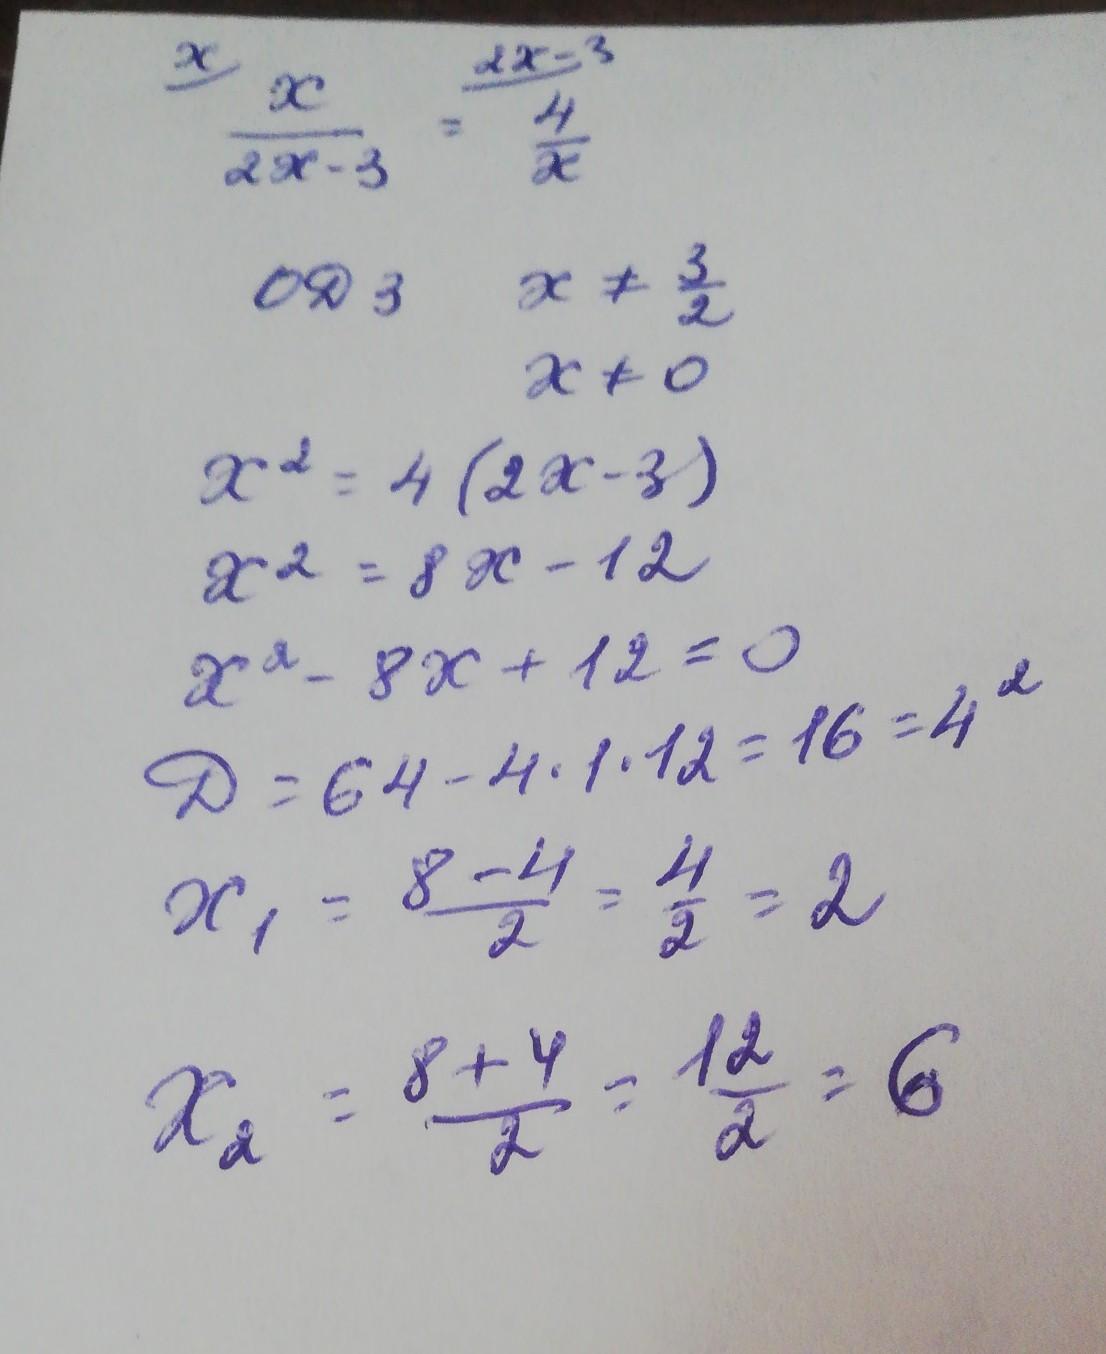 x/ x/(2x-3) = 2x-3/ 4/x
ОДЗ x ≠ 3/2
x ≠ 0
x² = 4(2x-3)
x² = 8x - 12
x² - 8x + 12 = 0
Д = 64 - 4·1·12 = 16 = 4²
x₁ = (8-4)/2 = 4/2 = 2
x₂ = (8+4)/2 = 12/2 = 6